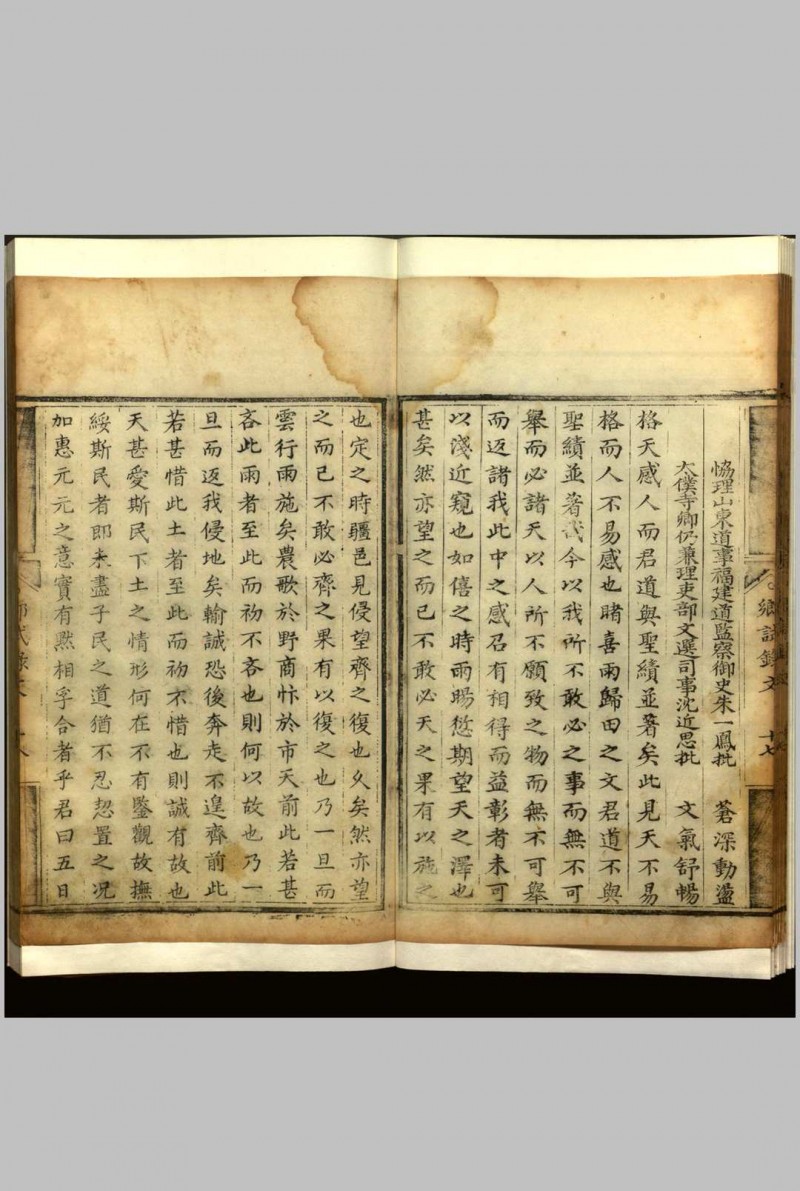 協理山東道事福建道監察御史朱一鳳批 蒼深動盪
太僕寺卿仍兼理吏部文選司事沈近思批 文氣舒暢
格天感人而君道與聖績並著矣此見天不易
格而人不易感也睹喜雨歸田之文君道不與
聖績並著哉今以我所不敢必之事而無不可
舉而必諸天以人所不願致之物而無不可舉
而返諸我此中之感召有相得而益彰者未可
以淺近窺也如僖之時雨暘愆期望天之澤也
甚矣然亦望之而已不敢必天之果有以施之
鄉試錄文 十七
也定之時疆邑見侵望齊之復也久矣然亦望
之而已不敢必齊之果有以復之也乃一旦而
雲行雨施矣農歌於野商忭於市天前此若甚
吝此雨者至此而初不吝也則何以故也乃一
旦而返我侵地矣輸誠恐後奔走不遑齊前此
若甚惜此土者至此而初不惜也則誠有故也
天甚愛斯民下土之情形何在不有鑒觀故撫
綏斯民者即未盡子民之道猶不忍恝置之況
加惠元元之意實有黙相孚合者乎君曰五日